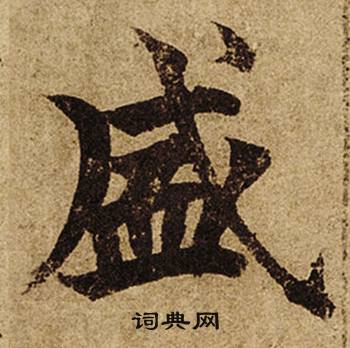 盛
词典网